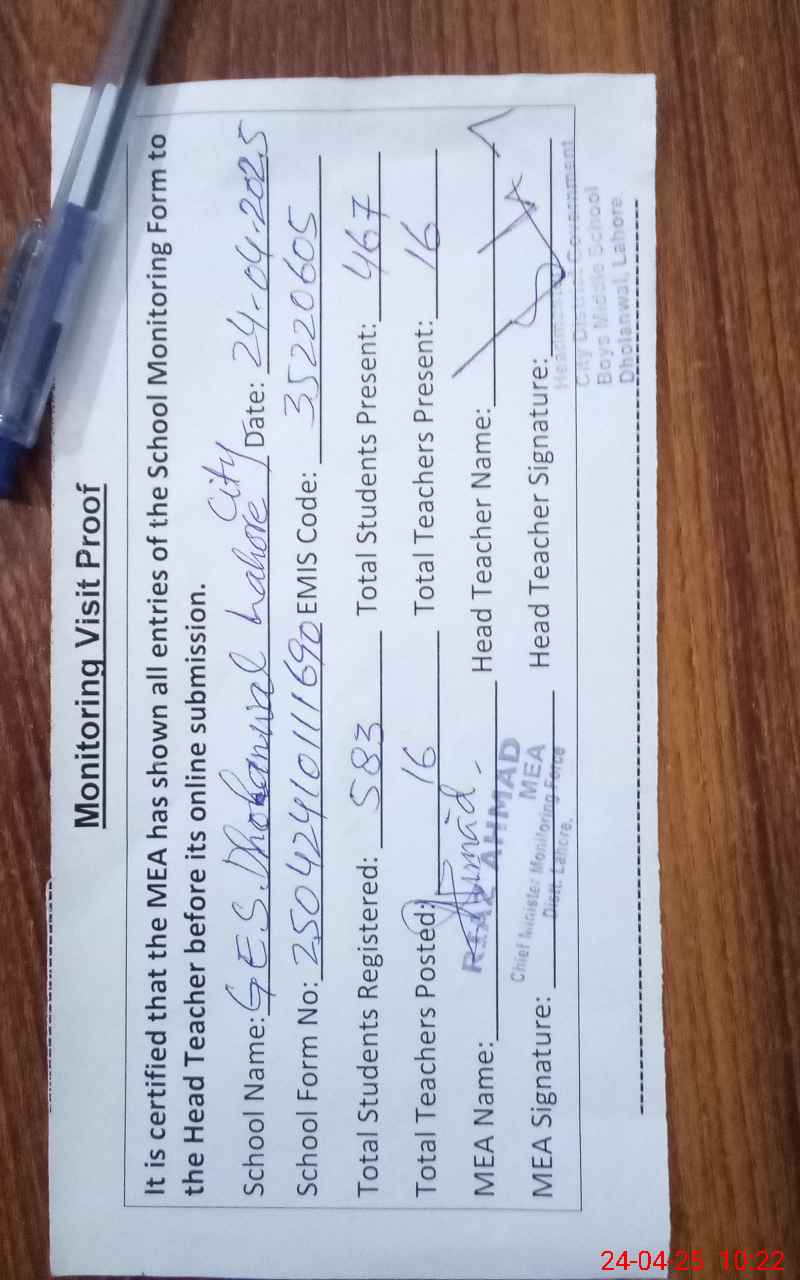 Monitoring Visit Proof
It is certified that the MEA has shown all entries of the School Monitoring Form to
the Head Teacher before its online submission.
School Name: G.E.S. Dholanwal Lahore City Date: 24-04-2025
School Form No: 2504241011690 EMIS Code: 35220605
Total Students Registered: 583 Total Students Present: 467
Total Teachers Posted: 16 Total Teachers Present: 16
MEA Name: Head Teacher Name:
RIAZ AHMAD
MEA Signature: Head Teacher Signature:
MEA
Chief Minister Monitoring Force
Distt. Lahore.
City District Government
Boys Middle School
Dholanwal, Lahore.
24-04-25 10:22